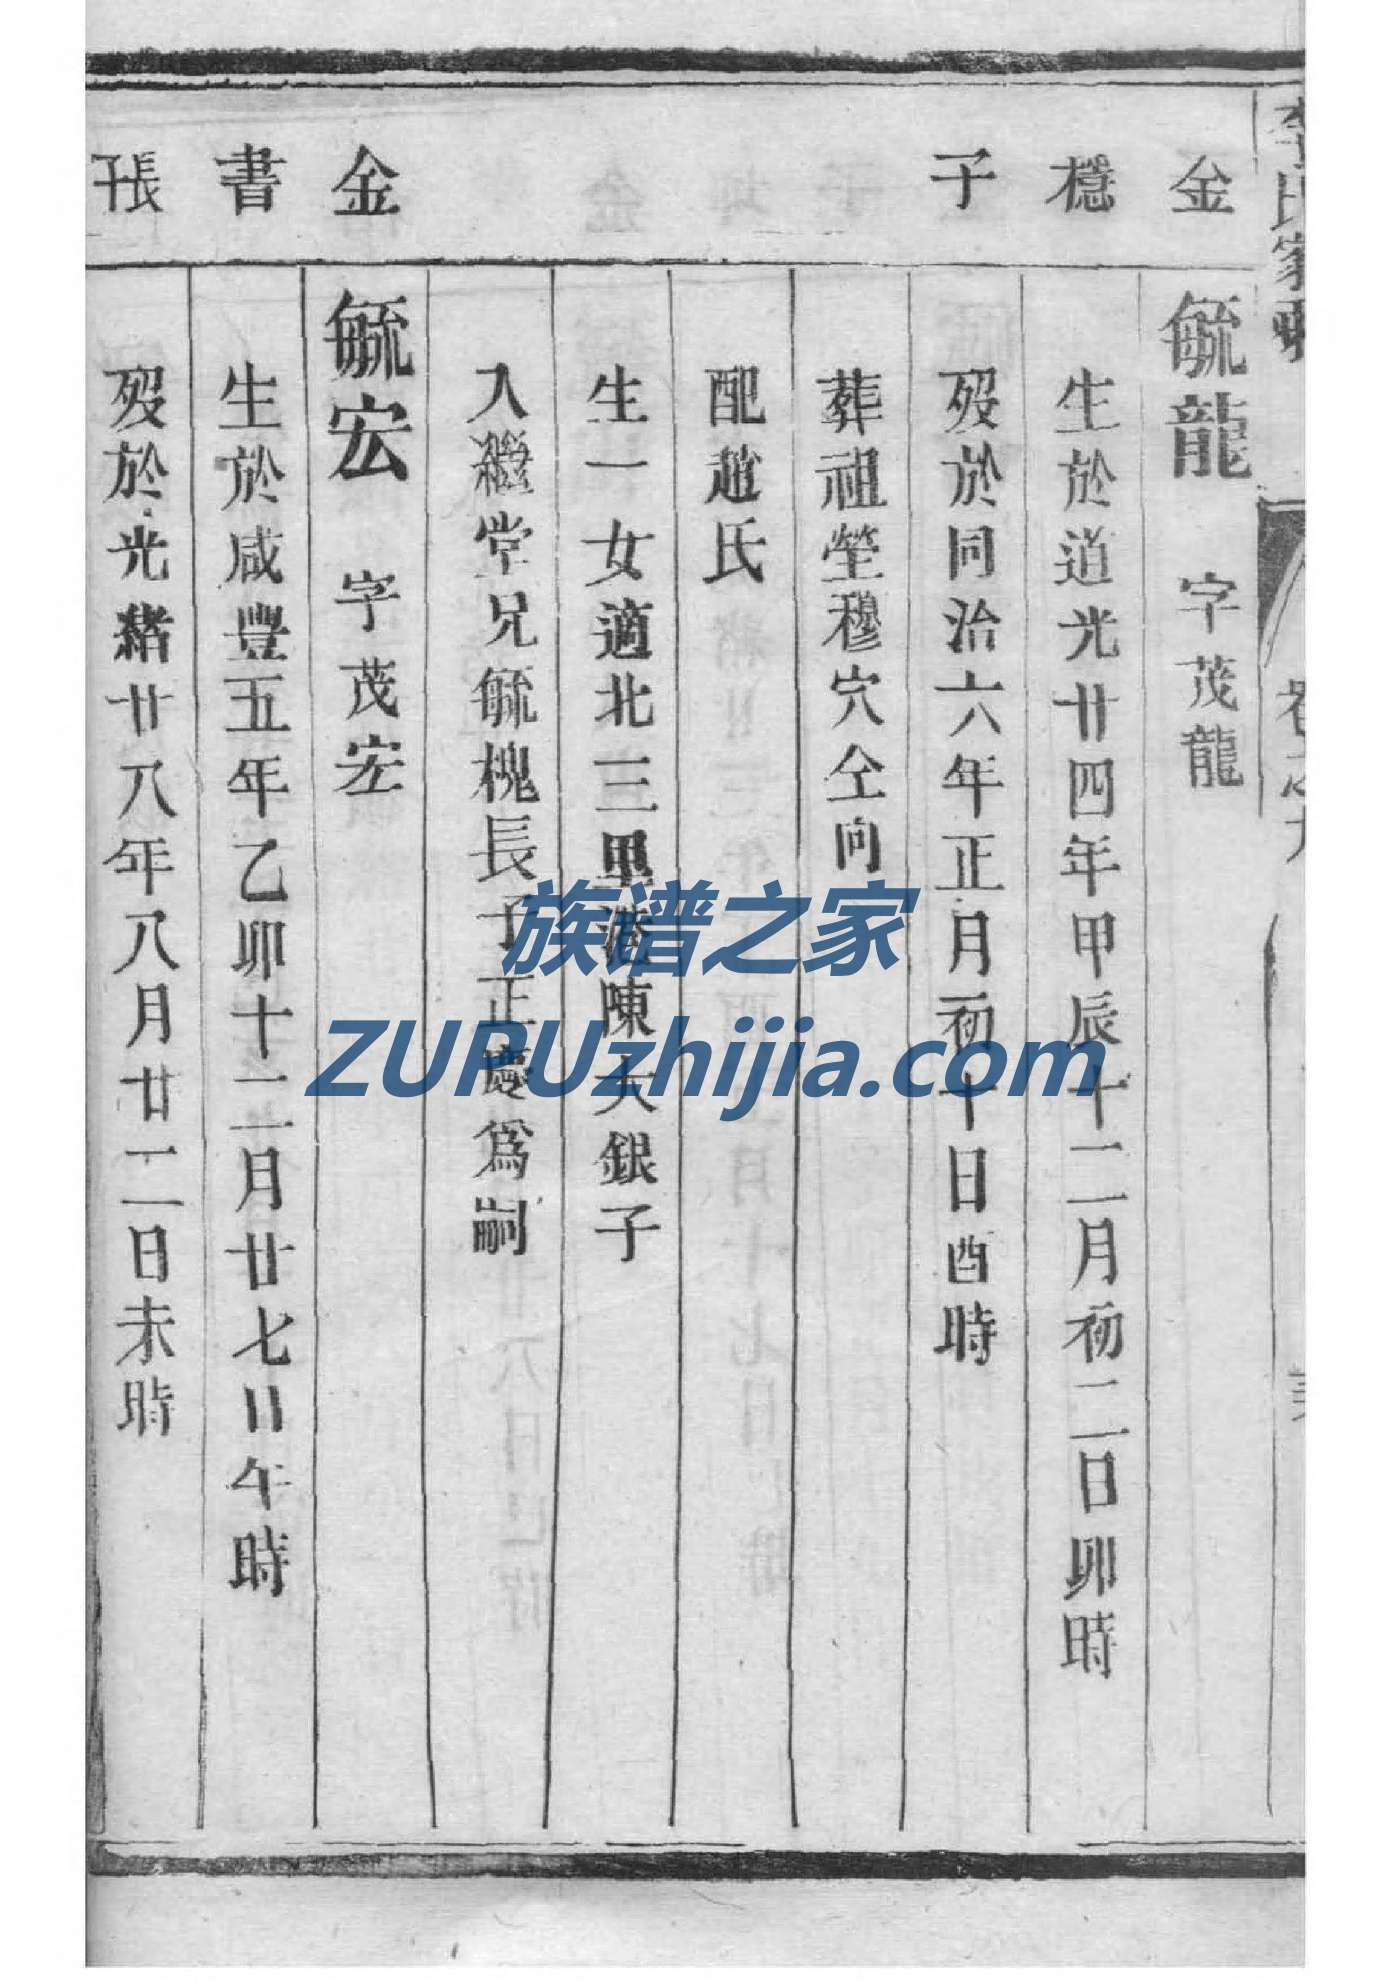 李氏家乘
卷之九
金
毓龍 字茂龍
穩
生於道光廿四年甲辰十二月初二日卯時
子
歿於同治六年正月初十日酉時
葬祖塋穆穴仝向
配趙氏
生一女適北三里港陳大銀子
入繼堂兄毓槐長子正慶為嗣
金
毓宏 字茂宏
書
生於咸豐五年乙卯十二月廿七日午時
長子
歿於光緒廿八年八月廿二日未時
族谱之家
ZUPUzhijia.com